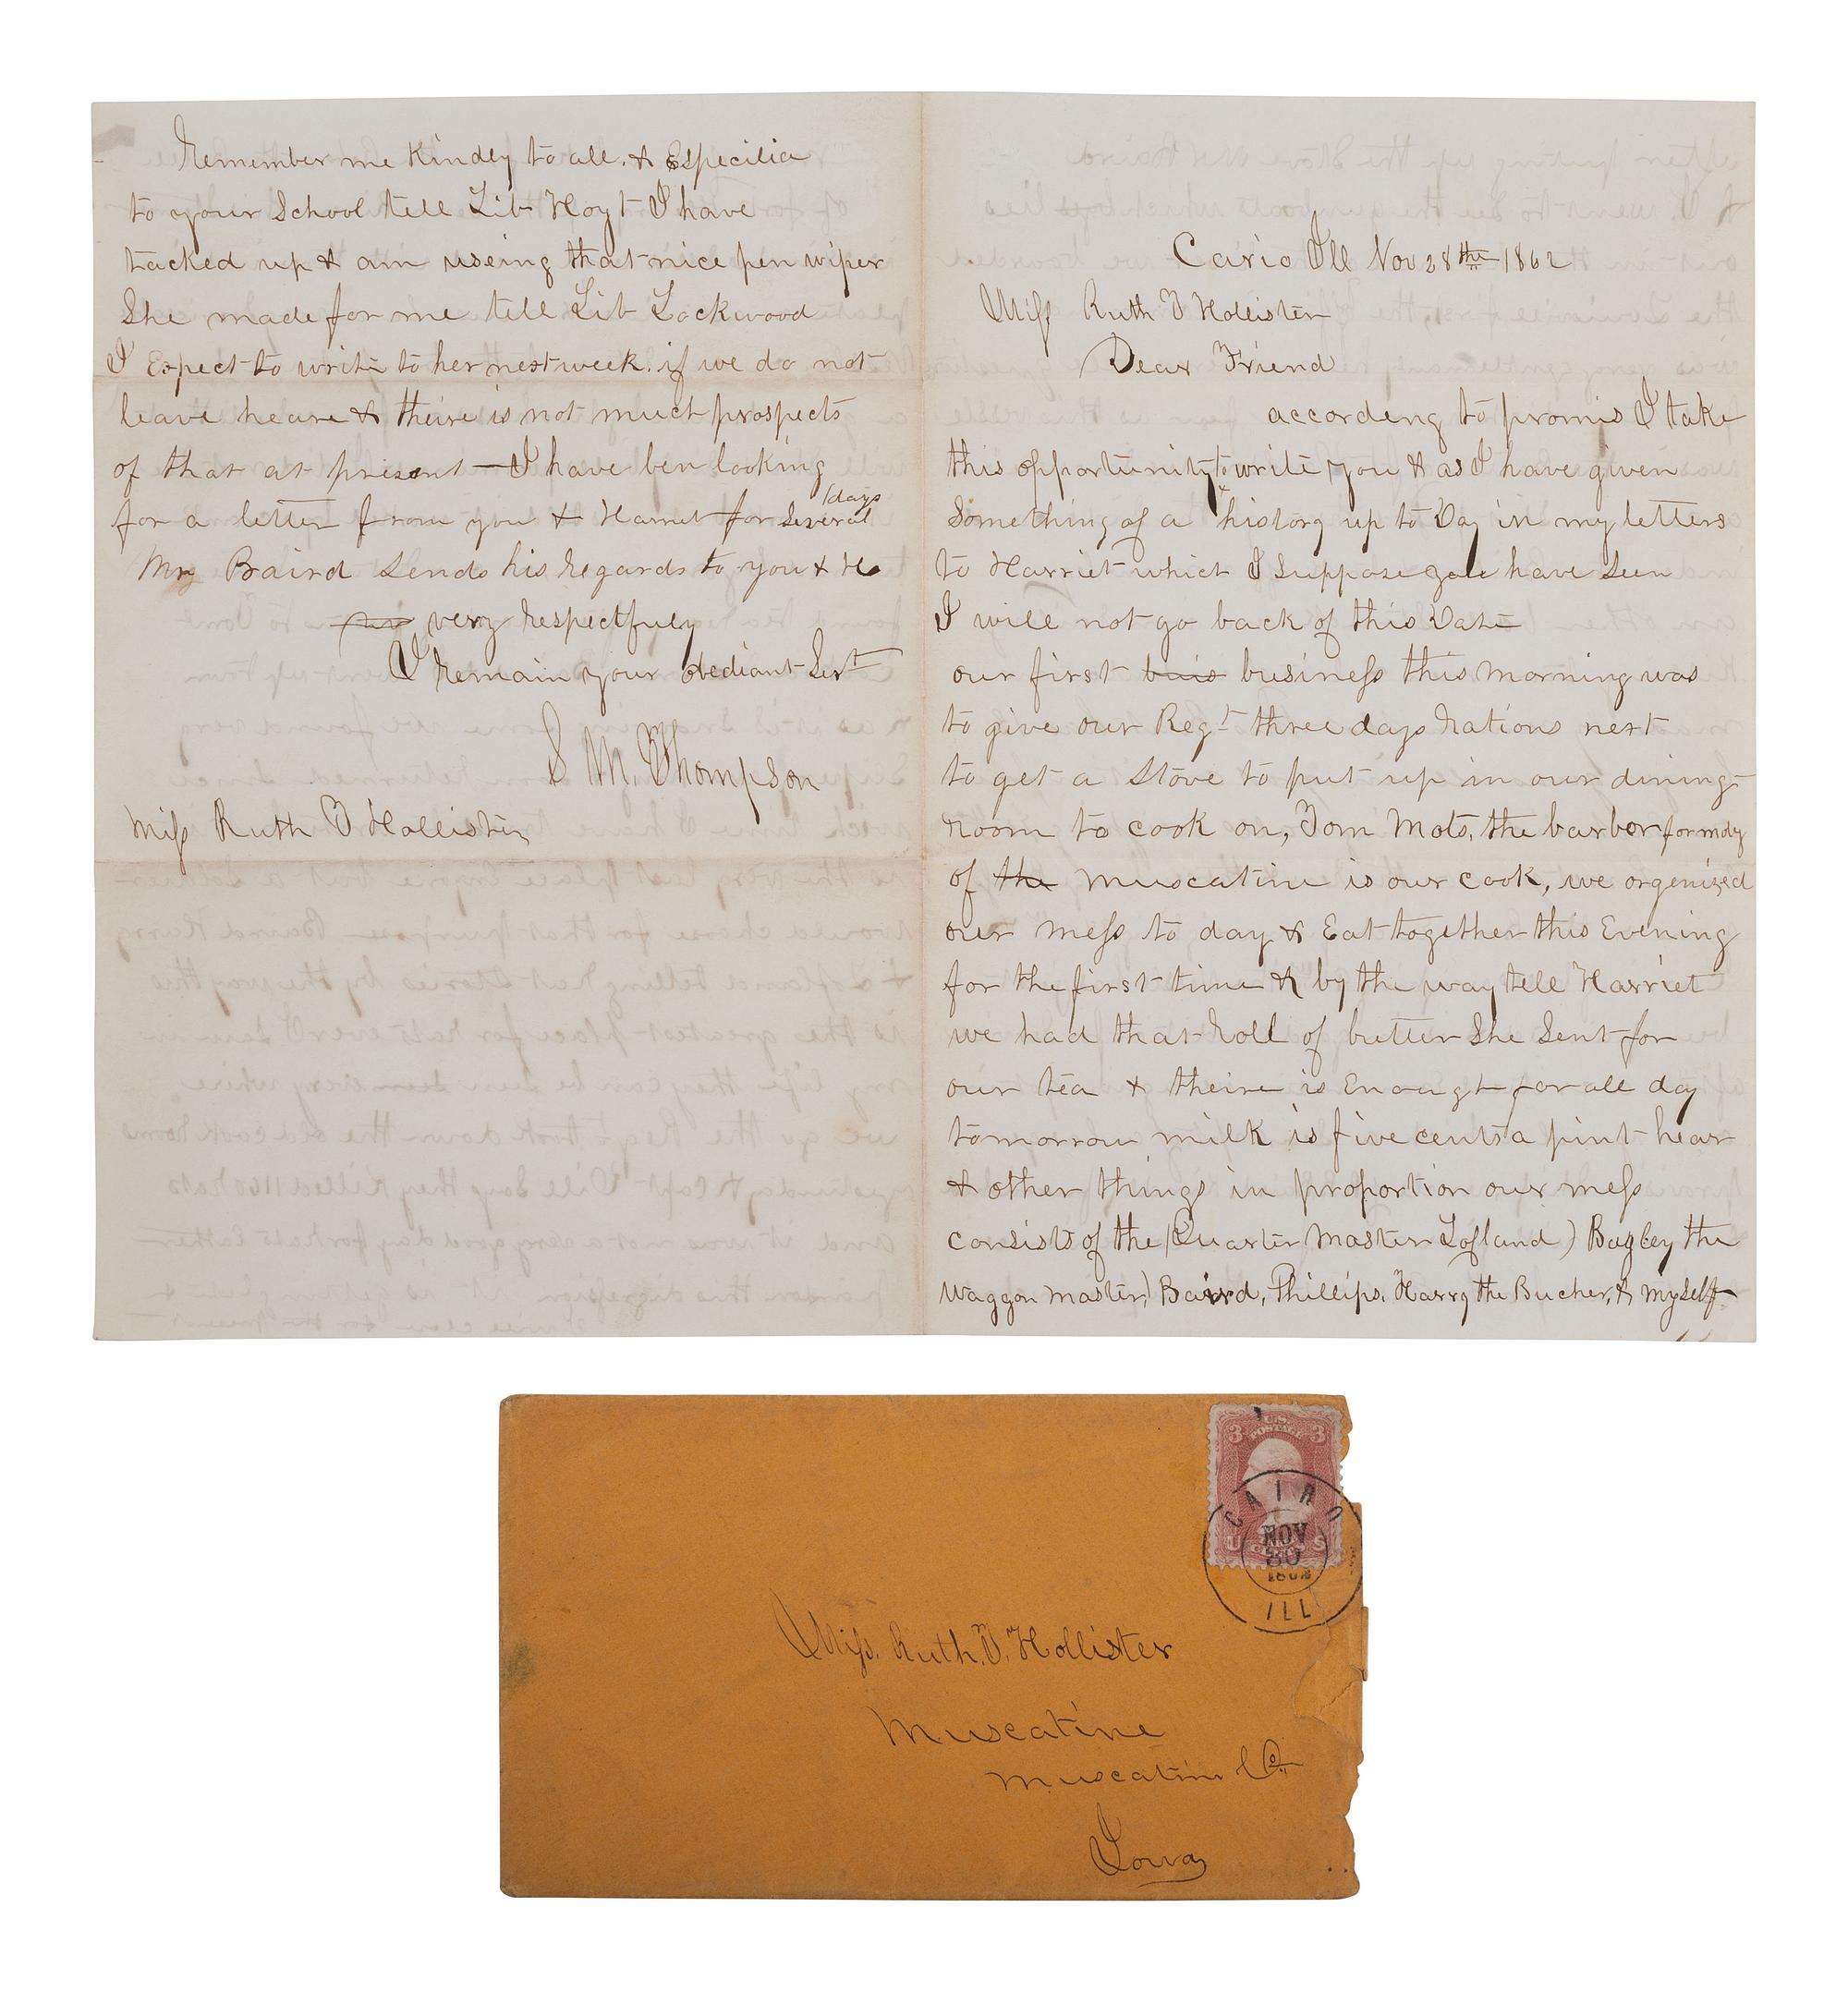 Cario Ill Nov 28th 1862
Miss Ruth T Hollister
Dear Friend
accordeng to promis I take
this opportunity to write you & as I have given
Something of a history up to Day in my letters
to Harriet which I Suppose you have Seen
I will not go back of this Date
our first buis business this morning was
to give our Regt three days Rations next
to get a Stove to put up in our dining
room to cook on, Tom Mots, the barbor formoly
of the Muscatine is our cook, we organized
our mess to day & Eat together this Evening
for the first time & by the way tell Harriet
we had that Roll of butter She Sent for
our tea & theire is Enough for all day
tomorrow milk is five cents a pint hear
& other things in proportion our mess
consists of the (Quarter Master Lofland) Bagley the
Waggon master) Baird, Phillips, Harry the Bucher, & myself
Remember me Kindly to all. & Especilia
to your School tell Lib Hoyt I have
tacked up & am useing that nice pen wiper
She made for me tell Lib Lockwood
I Expect to write to her next week. if we do not
leave heare & theire is not much prospects
of that at present — I have ben looking
for a letter from you & Harriet for Several days
Mr Baird Sends his Regards to you & H
very Respectfuly
I Remain your obediant Servt
S M. Thompson
Miss Ruth T Hollister
3 U.S. POSTAGE 3
U CENTS S
CAIRO
NOV
30
1862
ILL
Miss. Ruth. T. Hollister
Muscatine
Muscatine Co.
Iowa